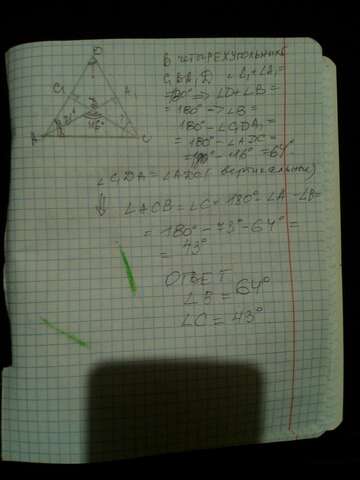 В четырехугольнике
C₁BA₁D ∠C₁+∠A₁=
=180° => ∠D+∠B=
=180° -> ∠B=
180°-∠C₁DA₁=
=180°-∠ADC=
-116°=64°
∠C₁DA₁=∠ADC (вертикальные)
∠ACB=∠C=180°-∠A-∠B=
=180°-73°-64°=
=43°
ОТВЕТ
∠B=64°
∠C=43°
B
C₁ A₁
D
116°
A C